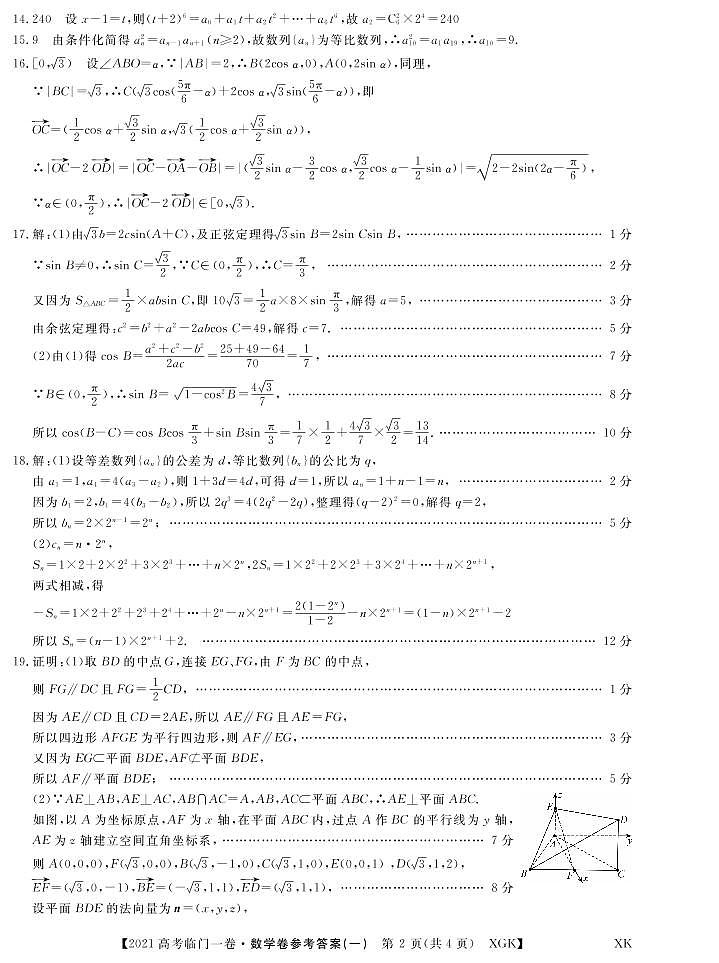 14.240 设 x−1=t,则(t+2)⁶=a₀+a₁t+a₂t²+⋯+a₆t⁶,故 a₂=C₆²×2⁴=240
15.9 由条件化简得 aₙ²=aₙ₋₁aₙ₊₁(n≥2),故数列{aₙ}为等比数列,∴a₁₀²=a₁a₁₉,∴a₁₀=9.
16.[0,√3) 设∠ABO=α,∵|AB|=2,∴B(2cos α,0),A(0,2sin α),同理,
∵|BC|=√3,∴C(√3cos(5π/6−α)+2cos α,√3sin(5π/6−α)),即
OC→=(1/2cos α+√3/2sin α,√3(1/2cos α+√3/2sin α)),
∴|OC→−2OD→|=|OC→−OA→−OB→|=|(√3/2sin α−3/2cos α,√3/2cos α−1/2sin α)|=√(2−2sin(2α−π/6)),
∵α∈(0,π/2),∴|OC→−2OD→|∈[0,√3).
17.解:(1)由√3b=2csin(A+C),及正弦定理得√3sin B=2sin Csin B,⋯⋯ 1分
∵sin B≠0,∴sin C=√3/2,∵C∈(0,π/2),∴C=π/3,⋯⋯ 2分
又因为 S△ABC=1/2×absin C,即 10√3=1/2a×8×sin π/3,解得 a=5,⋯⋯ 3分
由余弦定理得:c²=b²+a²−2abcos C=49,解得 c=7.⋯⋯ 5分
(2)由(1)得 cos B=(a²+c²−b²)/2ac=(25+49−64)/70=1/7,⋯⋯ 7分
∵B∈(0,π/2),∴sin B=√(1−cos²B)=4√3/7,⋯⋯ 8分
所以 cos(B−C)=cos Bcos π/3+sin Bsin π/3=1/7×1/2+4√3/7×√3/2=13/14.⋯⋯ 10分
18.解:(1)设等差数列{aₙ}的公差为 d,等比数列{bₙ}的公比为 q,
由 a₁=1,a₄=4(a₃−a₂),则 1+3d=4d,可得 d=1,所以 aₙ=1+n−1=n,⋯⋯ 2分
因为 b₁=2,b₄=4(b₃−b₂),所以 2q³=4(2q²−2q),整理得(q−2)²=0,解得 q=2,
所以 bₙ=2×2ⁿ⁻¹=2ⁿ;⋯⋯ 5分
(2)cₙ=n·2ⁿ,
Sₙ=1×2+2×2²+3×2³+⋯+n×2ⁿ,2Sₙ=1×2²+2×2³+3×2⁴+⋯+n×2ⁿ⁺¹,
两式相减,得
−Sₙ=1×2+2²+2³+2⁴+⋯+2ⁿ−n×2ⁿ⁺¹=2(1−2ⁿ)/(1−2)−n×2ⁿ⁺¹=(1−n)×2ⁿ⁺¹−2
所以 Sₙ=(n−1)×2ⁿ⁺¹+2.⋯⋯ 12分
19.证明:(1)取 BD 的中点 G,连接 EG、FG,由 F 为 BC 的中点,
则 FG∥DC 且 FG=1/2CD,⋯⋯ 1分
因为 AE∥CD 且 CD=2AE,所以 AE∥FG 且 AE=FG,
所以四边形 AFGE 为平行四边形,则 AF∥EG,⋯⋯ 3分
又因为 EG⊂平面 BDE,AF⊄平面 BDE,
所以 AF∥平面 BDE;⋯⋯ 5分
(2)∵AE⊥AB,AE⊥AC,AB∩AC=A,AB,AC⊂平面 ABC,∴AE⊥平面 ABC.
如图,以 A 为坐标原点,AF 为 x 轴,在平面 ABC 内,过点 A 作 BC 的平行线为 y 轴,
AE 为 z 轴建立空间直角坐标系,⋯⋯ 7分
则 A(0,0,0),F(√3,0,0),B(√3,−1,0),C(√3,1,0),E(0,0,1),D(√3,1,2),
EF→=(√3,0,−1),BE→=(−√3,1,1),ED→=(√3,1,1),⋯⋯ 8分
设平面 BDE 的法向量为 n=(x,y,z),
z
E
D
A
y
B
F
x
C
【2021高考临门一卷·数学卷参考答案(一) 第2页(共4页) XGK】
XK